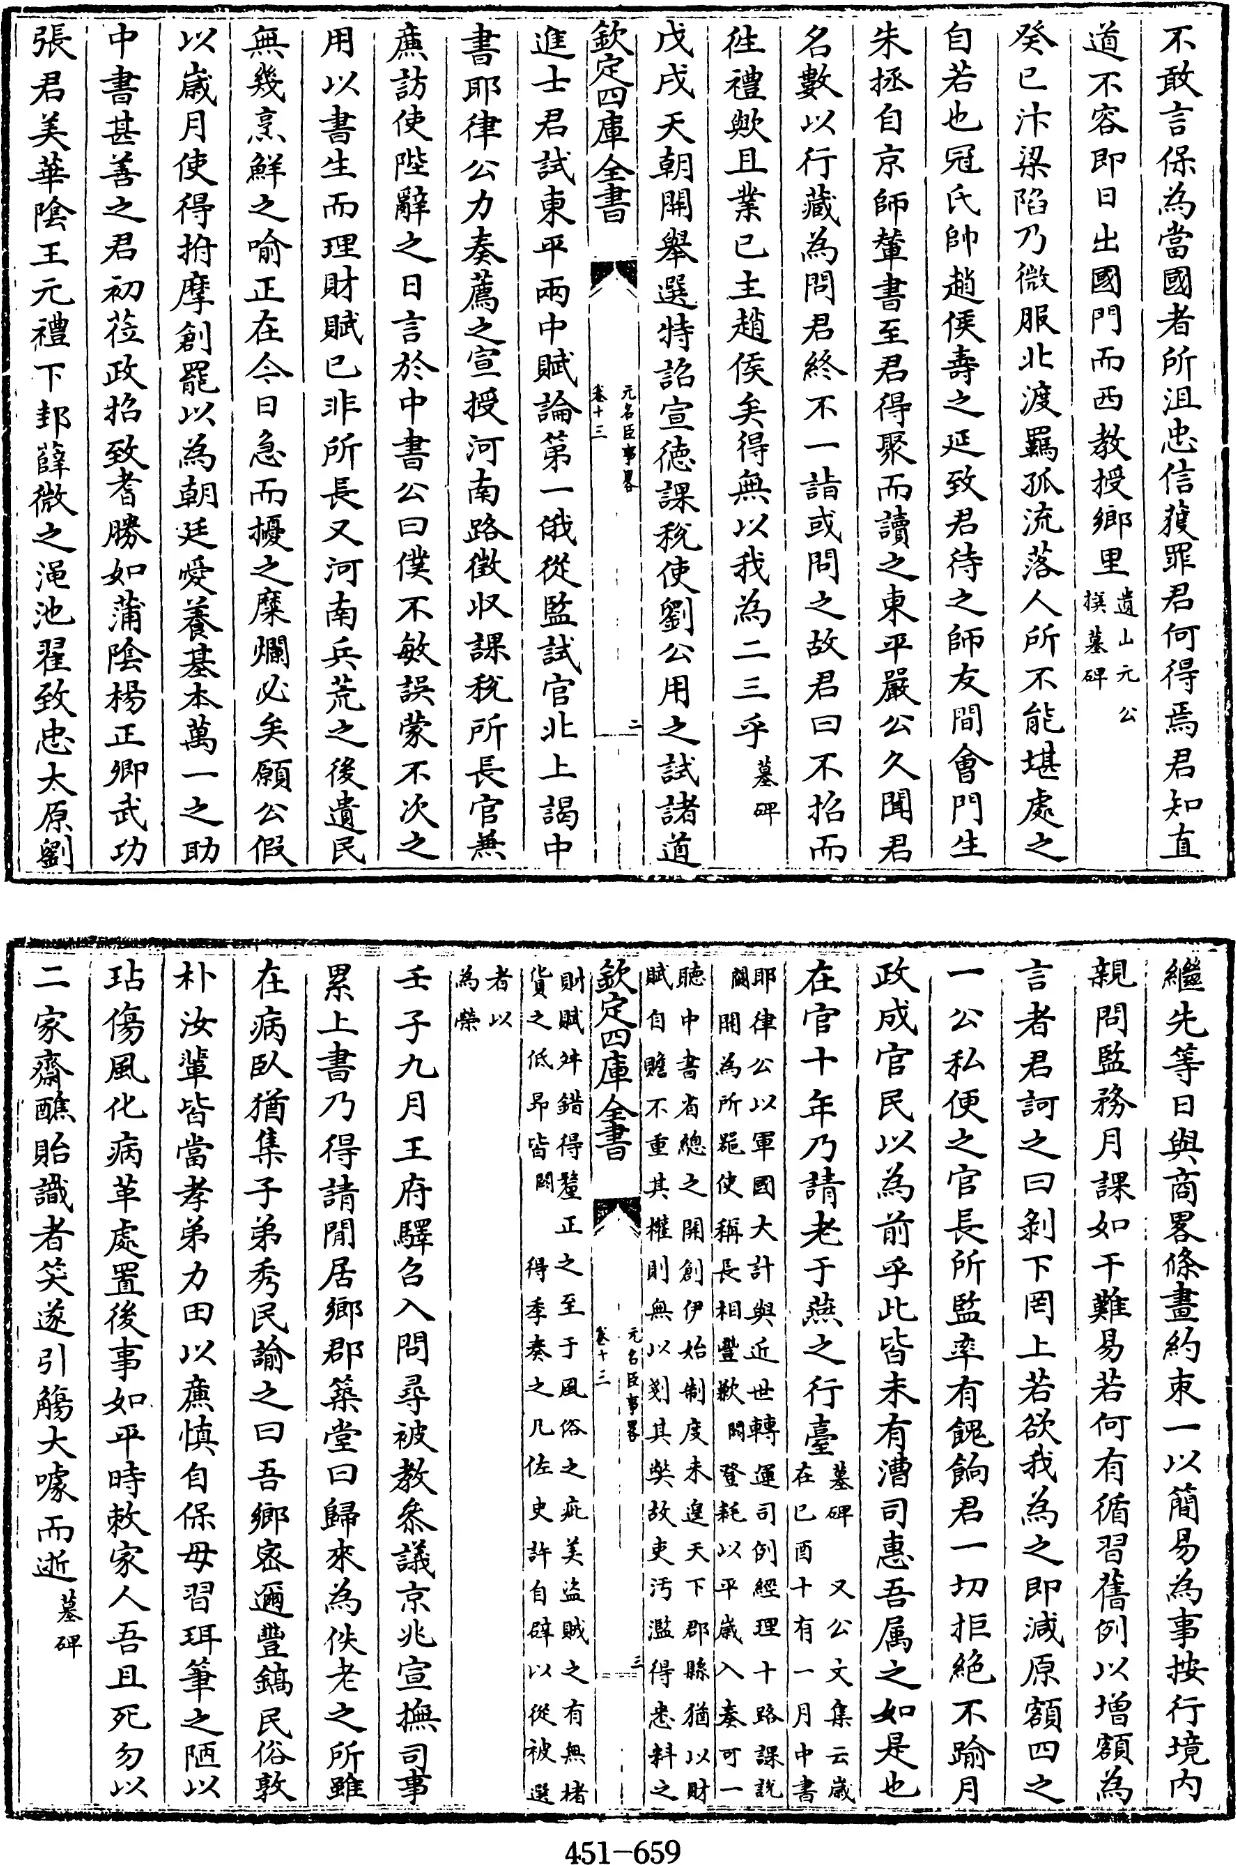 不敢言保為當國者所沮忠信獲罪君何得焉君知直
道不容即日出國門而西教授鄉里遺山元公撰墓碑
癸巳汴梁陷乃微服北渡羈孤流落人所不能堪處之
自若也冠氏帥趙侯壽之延致君待之師友間會門生
朱拯自京師輦書至君得聚而讀之東平嚴公久聞君
名數以行藏為問君終不一詣或問之故君曰不招而
徃禮歟且業已主趙侯矣得無以我為二三乎墓碑
戊戌天朝開舉選特詔宣徳課稅使劉公用之試諸道
欽定四庫全書
元名臣事畧
卷十三
二
進士君試東平兩中賦論第一俄從監試官北上謁中
書耶律公力奏薦之宣授河南路徵收課稅所長官兼
亷訪使陛辭之日言於中書公曰僕不敏誤蒙不次之
用以書生而理財賦已非所長又河南兵荒之後遺民
無幾烹鮮之喻正在今日急而擾之糜爛必矣願公假
以歲月使得拊摩創罷以為朝廷愛養基本萬一之助
中書甚善之君初莅政招致耆勝如蒲陰楊正卿武功
張君美華陰王元禮下邽薛微之澠池翟致忠太原劉
繼先等日與商畧條畫約束一以簡易為事按行境内
親問監務月課如干難易若何有循習舊例以增額為
言者君訶之曰剝下罔上若欲我為之即減原額四之
一公私便之官長所監率有餽餉君一切拒絶不踰月
政成官民以為前乎此皆未有漕司惠吾屬之如是也
在官十年乃請老于燕之行臺墓碑 又公文集云歲在己酉十有一月中書
耶律公以軍國大計與近世轉運司例經理十路課說
闕開為所罷使稱長相豐歉闕登耗以平歲入奏可一
聽中書省總之開創伊始制度未遑天下郡縣猶以財
賦自贍不重其權則無以刻其奬故吏汚濫得悉糾之
欽定四庫全書
元名臣事畧
卷十三
三
財賦舛錯得釐正之至于風俗之疵美盜賊之有無楮
貨之低昻皆闕得季奏之凡佐史許自辟以從被選
者以
為榮
壬子九月王府驛召入問尋被教叅議京兆宣撫司事
累上書乃得請閒居鄉郡築堂曰歸來為佚老之所雖
在病臥猶集子弟秀民諭之曰吾鄉宻邇豐鎬民俗敦
朴汝輩皆當孝弟力田以亷慎自保毋習珥筆之陋以
玷傷風化病革處置後事如平時敕家人吾且死勿以
二家齋醮貽識者笑遂引觴大噱而逝墓碑
451-659